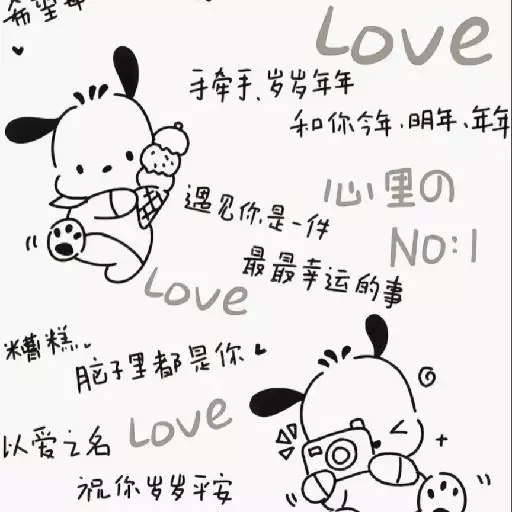 希望
Love
手牵手、岁岁年年
和你今年、明年、年年
心里の
NO:1
遇见你是一件
最最幸运的事
Love
糟糕..
脑子里都是你
Love
以爱之名
祝你岁岁平安